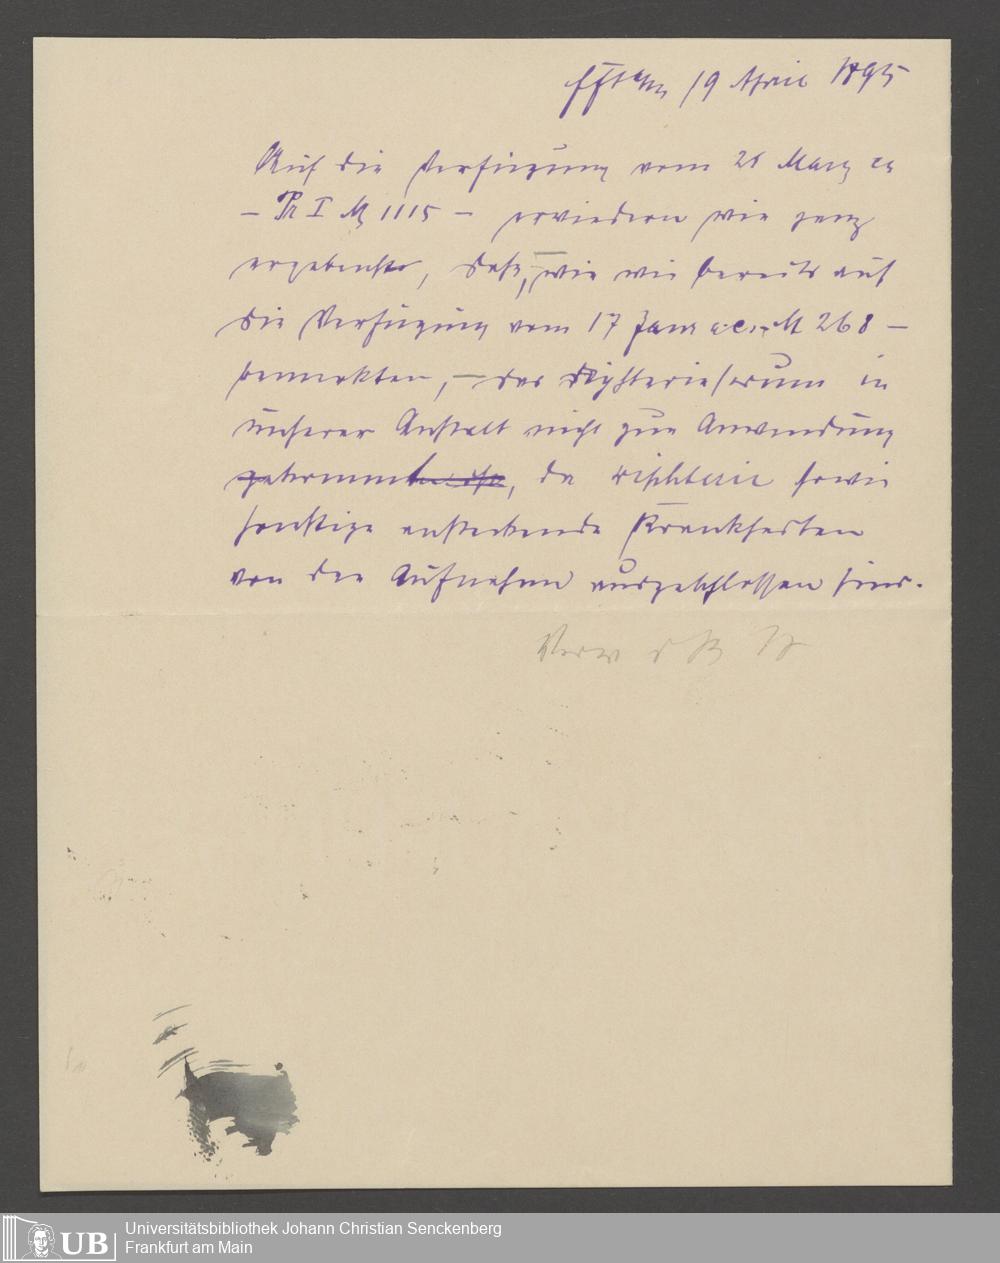 Ffta/m 19 April 1895
Auf die Verfügung vom 26 März ca
– Pr I № 1115 – erwiedern wir ganz
ergebenst, daß, wie wir bereits auf
die Verfügung vom 17 Janr a.c. № 268 –
bemerkten, – das Diphterieserum in
unserer Anstalt nicht zur Anwendung
gekommen, da Diphterie sowie
sonstige ansteckende Krankheiten
von der Aufnahme ausgeschlossen sind.
Verw
UB
Universitätsbibliothek Johann Christian Senckenberg
Frankfurt am Main